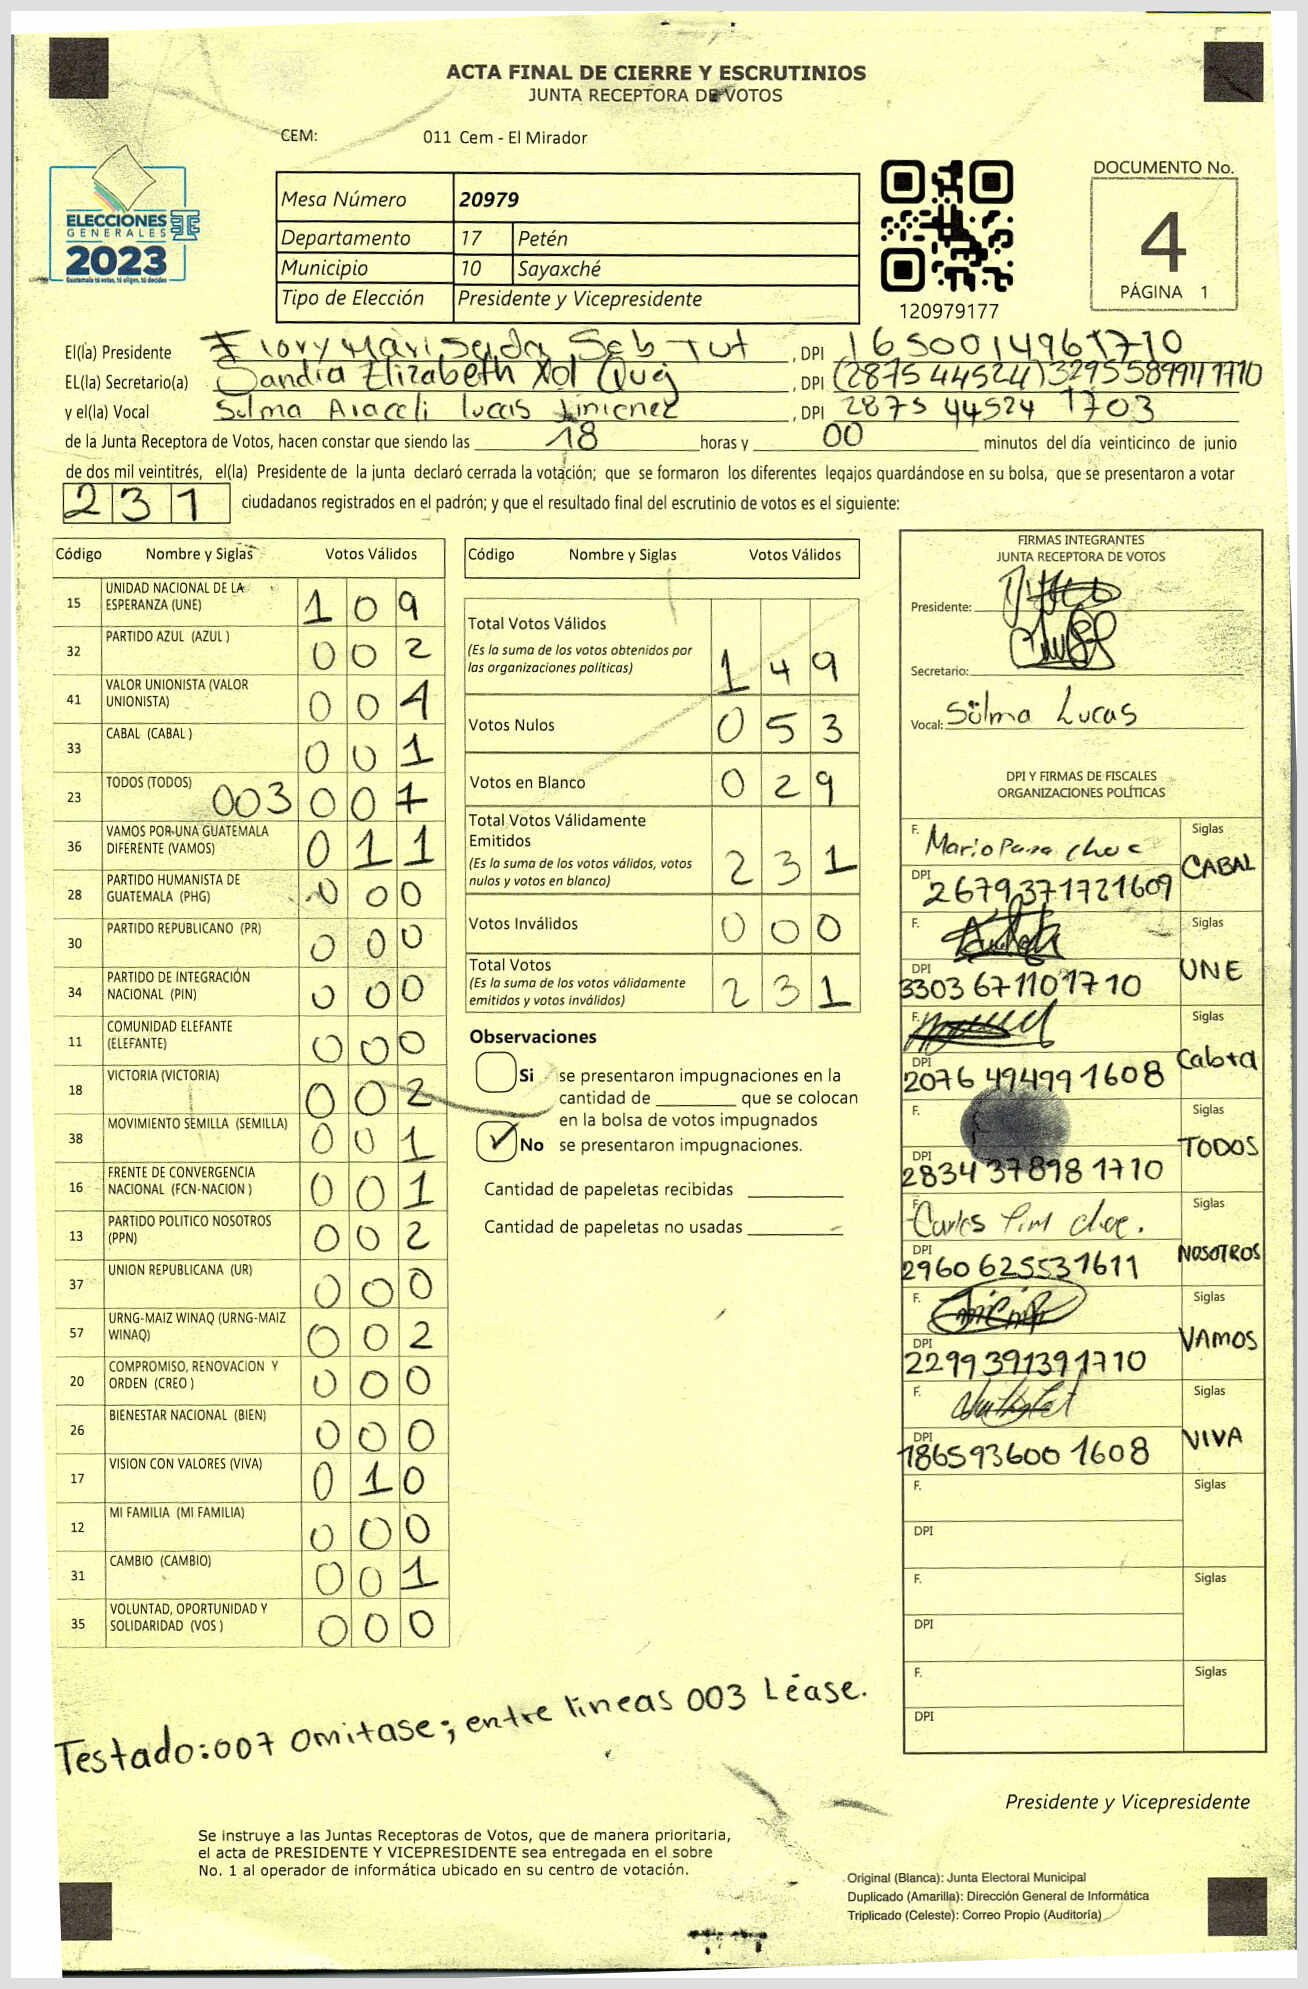 ACTA FINAL DE CIERRE Y ESCRUTINIOS
JUNTA RECEPTORA DE VOTOS
CEM: 011 Cem - El Mirador
ELECCIONES
GENERALES
2023
Guatemala tú votas, tú eliges, tú decides
Mesa Número 20979
Departamento 17 Petén
Municipio 10 Sayaxché
Tipo de Elección Presidente y Vicepresidente
120979177
DOCUMENTO No.
4
PÁGINA 1
El(la) Presidente Flory Marisela Seb Tut, DPI
EL(la) Secretario(a) Sandra Elizabeth Xol Quej, DPI
y el(la) Vocal Selma Araceli Lucas Jimenez, DPI 2875 44524 1703
de la Junta Receptora de Votos, hacen constar que siendo las 18 horas y 00 minutos del día veinticinco de junio
de dos mil veintitrés, el(la) Presidente de la junta declaró cerrada la votación; que se formaron los diferentes legajos guardándose en su bolsa, que se presentaron a votar
231 ciudadanos registrados en el padrón; y que el resultado final del escrutinio de votos es el siguiente:
Código Nombre y Siglas Votos Válidos
15 UNIDAD NACIONAL DE LA ESPERANZA (UNE) 109
32 PARTIDO AZUL (AZUL ) 002
41 VALOR UNIONISTA (VALOR UNIONISTA) 004
33 CABAL (CABAL ) 001
23 TODOS (TODOS) 003 007
36 VAMOS POR UNA GUATEMALA DIFERENTE (VAMOS) 011
28 PARTIDO HUMANISTA DE GUATEMALA (PHG) 000
30 PARTIDO REPUBLICANO (PR) 000
34 PARTIDO DE INTEGRACIÓN NACIONAL (PIN) 000
11 COMUNIDAD ELEFANTE (ELEFANTE) 000
18 VICTORIA (VICTORIA) 002
38 MOVIMIENTO SEMILLA (SEMILLA) 001
16 FRENTE DE CONVERGENCIA NACIONAL (FCN-NACION ) 001
13 PARTIDO POLITICO NOSOTROS (PPN) 002
37 UNION REPUBLICANA (UR) 000
57 URNG-MAIZ WINAQ (URNG-MAIZ WINAQ) 002
20 COMPROMISO, RENOVACION Y ORDEN (CREO ) 000
26 BIENESTAR NACIONAL (BIEN) 000
17 VISION CON VALORES (VIVA) 010
12 MI FAMILIA (MI FAMILIA) 000
31 CAMBIO (CAMBIO) 001
35 VOLUNTAD, OPORTUNIDAD Y SOLIDARIDAD (VOS ) 000
Código Nombre y Siglas Votos Válidos
Total Votos Válidos
(Es la suma de los votos obtenidos por
las organizaciones políticas) 149
Votos Nulos 053
Votos en Blanco 029
Total Votos Válidamente
Emitidos
(Es la suma de los votos válidos, votos
nulos y votos en blanco) 231
Votos Inválidos 000
Total Votos
(Es la suma de los votos válidamente
emitidos y votos inválidos) 231
Observaciones
Si se presentaron impugnaciones en la
cantidad de ________ que se colocan
en la bolsa de votos impugnados
No se presentaron impugnaciones.
Cantidad de papeletas recibidas
Cantidad de papeletas no usadas
FIRMAS INTEGRANTES
JUNTA RECEPTORA DE VOTOS
Presidente:
Secretario:
Vocal: Selma Lucas
DPI Y FIRMAS DE FISCALES
ORGANIZACIONES POLÍTICAS
F. Mario Siglas
DPI 2679371721609 CABAL
F. Siglas
DPI 3303 671101710 UNE
F. Siglas
DPI 2076 49499 1608
F. Siglas
DPI 2834 37898 1710 TODOS
F. Carlos Siglas
DPI 2960 62553 1611 NOSOTROS
F. Siglas
DPI 2299 39139 1710 VAMOS
F. Siglas
DPI 1865 93600 1608 VIVA
F. Siglas
DPI
F. Siglas
DPI
F. Siglas
DPI
Testado: 007 Omitase; entre lineas 003 Léase.
Presidente y Vicepresidente
Se instruye a las Juntas Receptoras de Votos, que de manera prioritaria,
el acta de PRESIDENTE Y VICEPRESIDENTE sea entregada en el sobre
No. 1 al operador de informática ubicado en su centro de votación.
Original (Blanca): Junta Electoral Municipal
Duplicado (Amarilla): Dirección General de Informática
Triplicado (Celeste): Correo Propio (Auditoría)